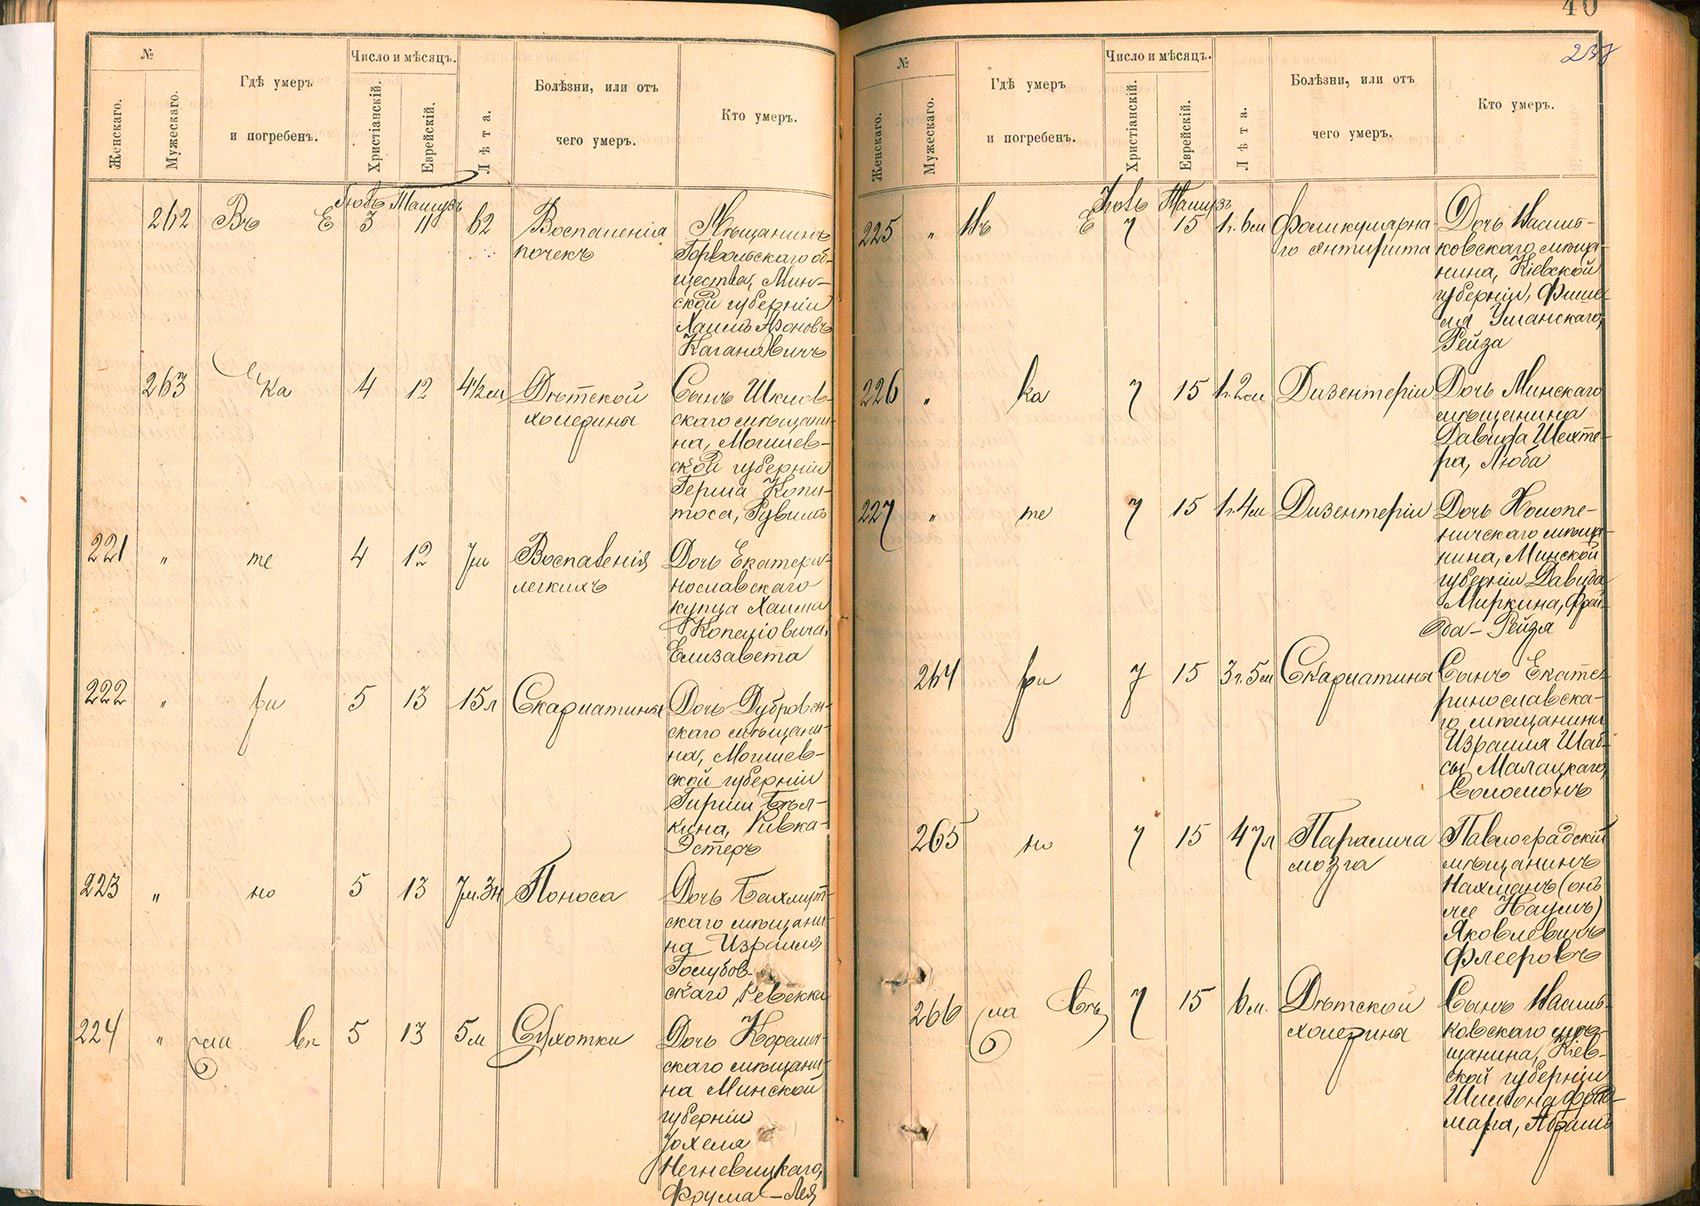 №
Число и мѣсяцъ.
Женскаго.
Мужескаго.
Гдѣ умеръ
и погребенъ.
Христіанскій.
Еврейскій.
Лѣта.
Болѣзни, или отъ
чего умеръ.
Кто умеръ.
262 Въ Е 3 11 62 Воспаленія Мѣщанинъ
почекъ Горвольскаго об-
щества, Мин-
ской губерніи
Хаимъ Ароновъ
Кагановичъ
263 ка 4 12 4½м Дѣтской Сынъ Шклов-
холерины скаго мѣщани-
на, Могилев-
ской губерніи
Герша Копы-
тоса, Рувимъ
221 „ те 4 12 7м Воспаленія Дочь Екатери-
легкихъ нославскаго
купца Хаима
Копеліовича,
Елизавета
222 „ ри 5 13 15л Скарлатины Дочь Дубровен-
скаго мѣщани-
на, Могилев-
ской губерніи
Гирши Бѣл-
кина, Ривка-
Эстеръ
223 „ но 5 13 7м.3н Поноса Дочь Бахмут-
скаго мѣщани-
на Израиля
Голубов-
скаго, Ревекка
224 „ сла вп 5 13 5м Сухотки Дочь
скаго мѣщани-
на Минской
губерніи
Іохеля
Негневицкаго,
Фрума-Лея
40
238
№
Число и мѣсяцъ.
Женскаго.
Мужескаго.
Гдѣ умеръ
и погребенъ.
Христіанскій.
Еврейскій.
Лѣта.
Болѣзни, или отъ
чего умеръ.
Кто умеръ.
225 „ Въ Е 7 15 1г.6м Фоликулярна- Дочь Василь-
го энтерита ковскаго мѣща-
нина, Кіевской
губерніи, Фише-
ля Уманскаго,
Рейза
226 „ ка 7 15 1г.2м Дизентеріи Дочь Минскаго
мѣщанина
Давида Шехте-
ра, Люба
227 „ те 7 15 1г.4м Дизентеріи Дочь Холопе-
ничскаго мѣща-
нина, Минской
губерніи Давида
Миркина, Фрай-
да-Рейзя
264 ри 7 15 3г.5м Скарлатины Сынъ Екате-
ринославска-
го мѣщанина
Израиля Шаб-
сы Малацкаго,
Соломонъ
265 но 7 15 47л Паралича Павлоградскій
мозга мѣщанинъ
Нахманъ (онъ
же Наумъ)
Яковлевичъ
Флееровъ
266 сла въ 7 15 6м. Дѣтской Сынъ Василь-
холерины ковскаго мѣ-
щанина, Кіев-
ской губерніи
Шимона
мара, Абрамъ